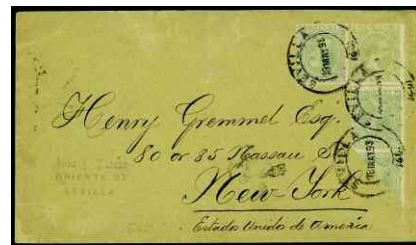 SEVILLA
16 MAY 93
Henry Gremmel Esq.
80 or 85 Nassau St
New-York
Estados Unidos de America
ORIENTE 27
SEVILLA